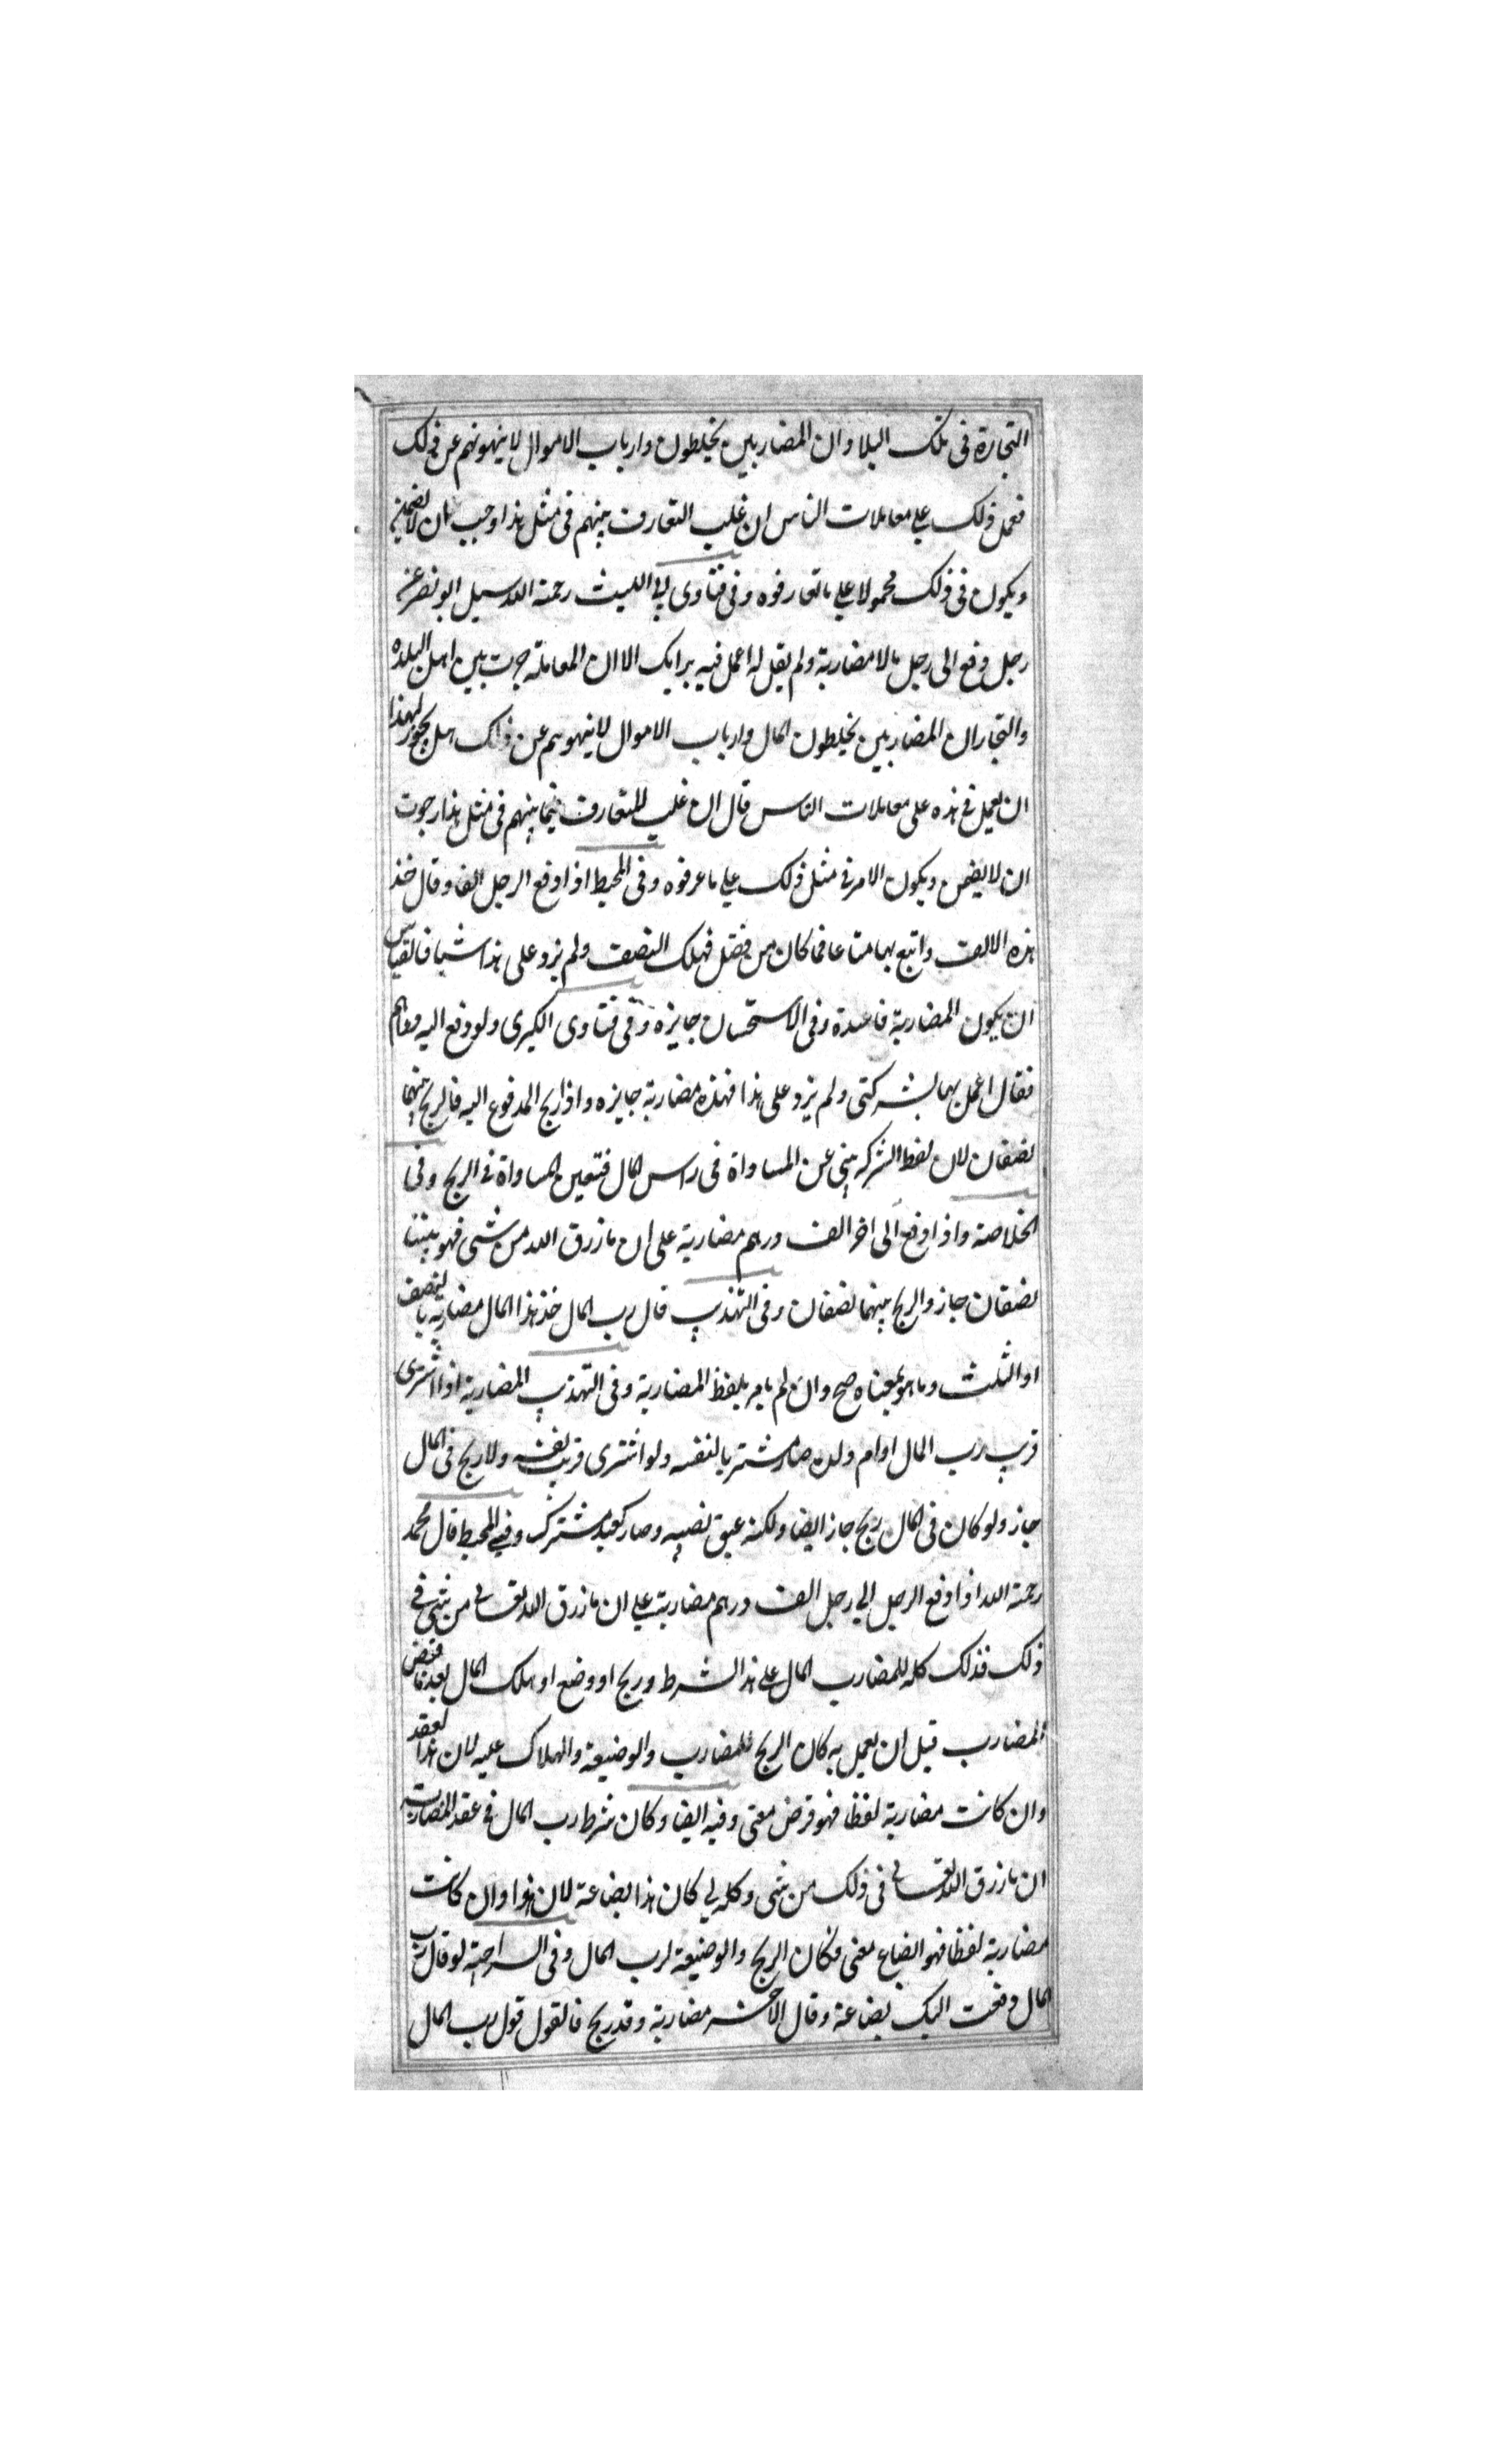 التجارة فى تلك البلاد ان المضاربين يخلطون وارباب الاموال لا ينهونهم عن ذلك
فعمل ذلك على معاملات الناس ان غلب التعارف بينهم فى مثل هذا وجب بان لا يضمن
ويكون فى ذلك محمولا على ما تعارفوه وفى فتاوى ابى الليث رحمة الله سيل ابو نصر عن
رجل دفع الى رجل مالا مضاربة ولم يقل له اعمل فيه برايك الا ان المعاملة جرت بين اهل البلده
والتجار ان المضاربين يخلطون المال وارباب الاموال لا ينهوهم عن ذلك هل يجوز لهذا
ان يعمل فى هذه على معاملات الناس قال ان غلب المتعارف فيما بينهم فى مثل هذا رجوت
ان لا يضمن ويكون الامر فى مثل ذلك على ما عرفوه وفى المحيط اذا دفع الرجل الفا وقال خذ
هذه الالف واتبع بها متاعا فما كان من فضل فهلك النصف ولم يزد على هذا شيا فالقياس
ان يكون المضاربة فاسدة وفى الاستحسان جايزه وفى فتاوى الكبرى ولو دفع اليه دراهم
فقال اعمل بها بشركتى ولم يزد على هذا فهذه مضاربة جايزه واذا ربح المدفوع اليه فالربح بينهما
نصفان لان لفظ الشركه ينبى عن المساواة فى راس المال فتعين المساواة فى الربح وفى
الخلاصة واذا دفع الى اخر الف درهم مضاربة على ان ما رزق الله من شى فهو بيننا
نصفان جاز والربح بينهما نصفان وفى التهذيب قال رب المال خذ هذا المال مضاربة بالنصف
او الثلث وما هو بمعناه صح وان لم يامر بلفظ المضاربة وفى التهذيب المضاربة اذا اشترى
قريب رب المال او ام ولد صار مشتريا لنفسه ولو اشترى قريب نفسه ولا ربح فى المال
جاز ولو كان فى المال ربح جاز ايضا ولكنه عتق نصيبه وصار كعبد مشترك وفى المحيط قال محمد
رحمة الله اذا دفع الرجل الى رجل الف درهم مضاربة على ان ما رزق الله تعالى من شى فى
ذلك فذلك كله للمضارب المال على هذا الشرط وربح او وضع او هلك المال بعد ما قبض
المضارب قبل ان يعمل به كان الربح للمضارب والوضيعة والهلاك عليه لان هذا العقد
وان كانت مضاربة لفظا فهو قرض معنى وفيه ايضا وكان شرط رب المال فى عقد المضاربة
ان ما رزق الله تعالى فى ذلك من شى وكله لى كان هذا بضاعة لان هذا وان كانت
مضاربة لفظا فهو ابضاع معنى فكان الربح والوضيعة لرب المال وفى السراجية لو قال رب
المال دفعت اليك بضاعة وقال الاخر مضاربة وقد ربح فالقول قول رب المال